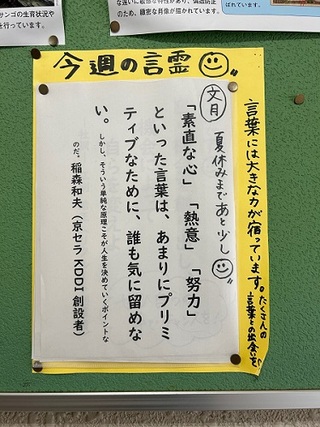 サンゴの生育状況や
を行っています。
のため、緻密な肖像が描かれています。
ばれています。
今週の言霊
言葉には大きな力が宿っています。たくさんの
言葉との出会いを
文月 夏休みまであと少し
「素直な心」「熱意」「努力」
といった言葉は、あまりにプリミ
ティブなために、誰も気に留めな
い。
しかし、そういう単純な原理こそが人生を決めていくポイントな
のだ。稲森和夫(京セラ KDDI 創設者)